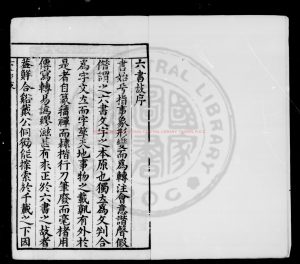 六書故序
書始於指事象形變而為轉注會意諧聲假
借謂之六書文字之本原也獨立為文判合
為字文立而字孳天地事物之載靡有外於
是者自篆籀禪而隷楷行刀筆廢而毫楮用
傳寫轉易譌謬滋甚有未正於六書之故者
葢鮮合谿戴公侗獨能探索於千載之下因